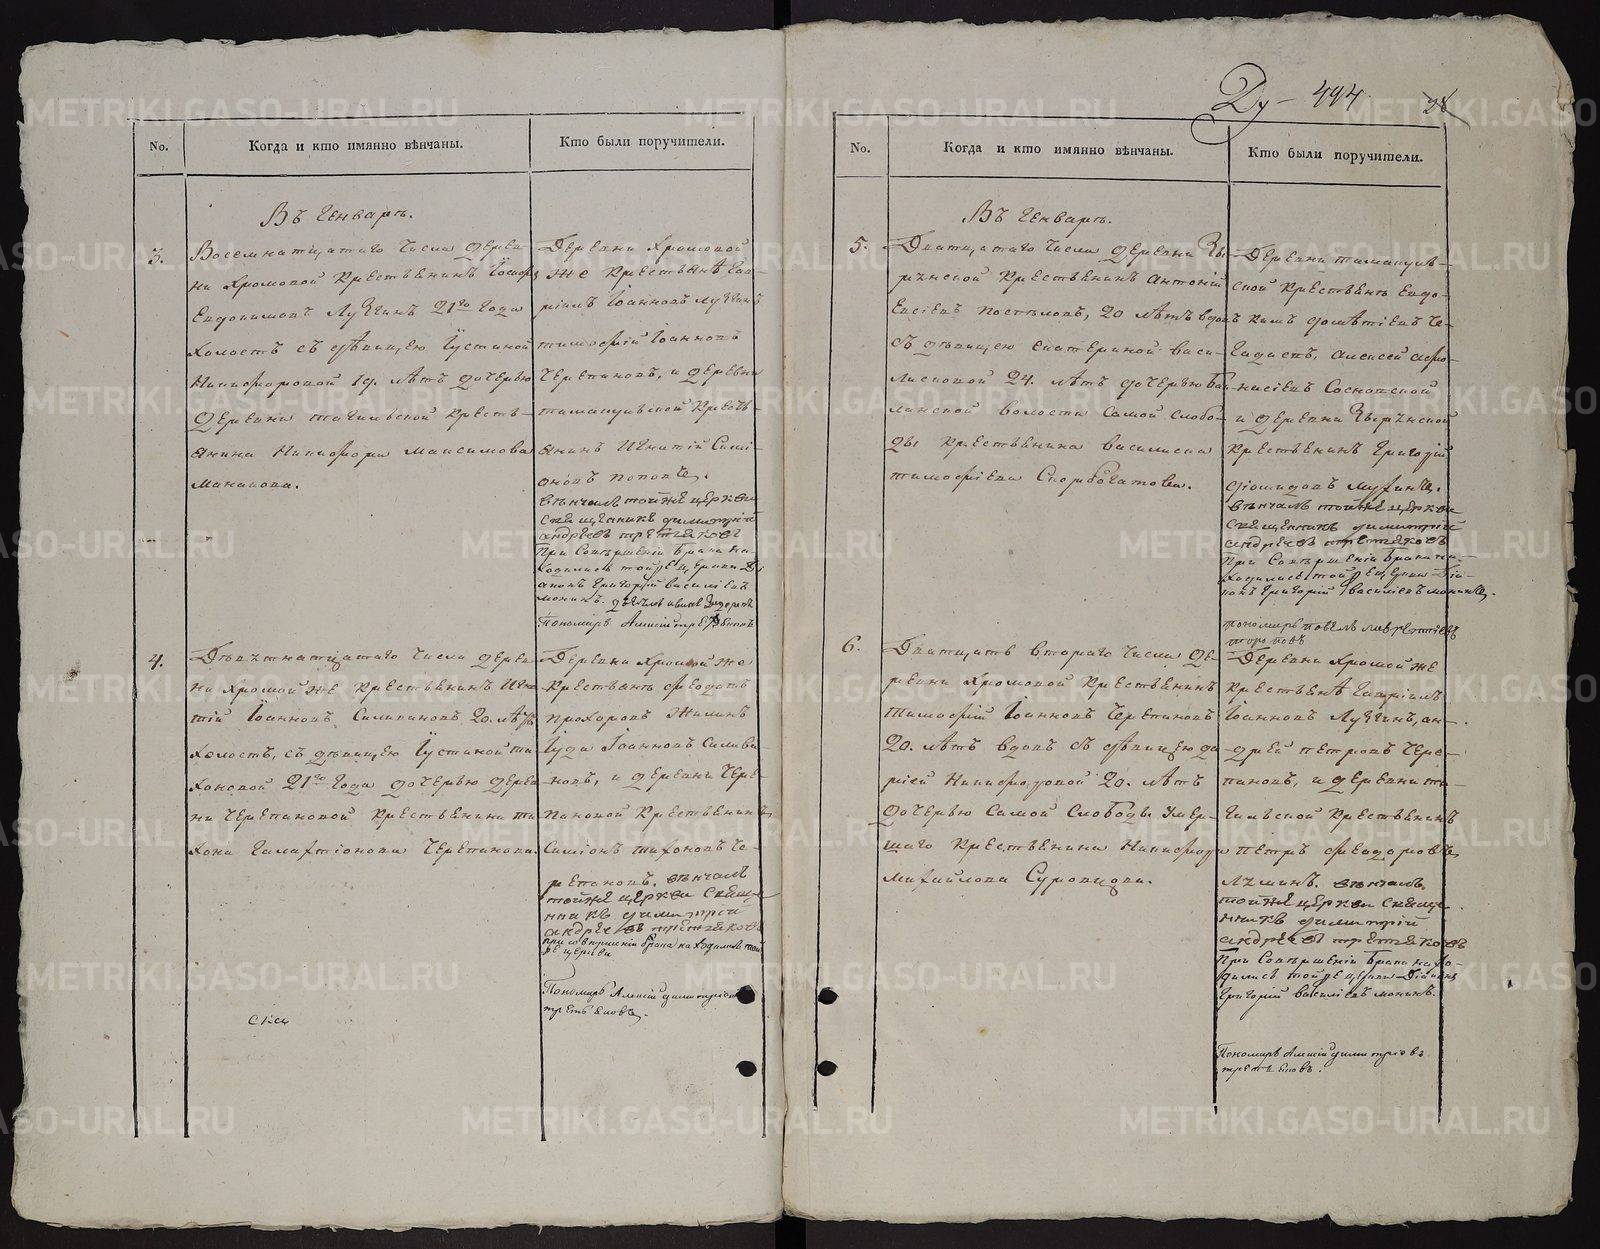 No.
Когда и кто имянно вѣнчаны.
Кто были поручители.
Въ Генварѣ.
3.
Восемнатцатаго числа дерев-
ни Хромовой крестьянинъ
Евдокимовъ Лузгинъ 21го года
холостъ съ дѣвицею Іустиной
Никифоровой 19. лѣтъ дочерью
деревни Тагильской крестья-
анина Никифора Максимова
Манакова.
Деревни Хромовой
же крестьянѣ Гав-
ріилъ Іоанновъ Лузгинъ
Тимофѣй Іоанновъ
Черепановъ, и деревни
крестъ-
анинъ Игнатій Симі-
оновъ Поповъ.
вѣнчалъ тойже церкви
священникъ Димитрій
Андреевъ Третьяковъ
При Совершеніи Брака на-
ходились тойже церкви Ді
аконъ Григорій Василіевъ
Мокинъ.
Пономарь Алексій Третьяковъ
4.
Девятнатцатаго числа дерев
ни Хромой же крестьянинъ Игна
тій Іоанновъ Силивановъ 20. лѣтъ
холостъ, съ дѣвицею Іустиной Ти
хоновой 21го года дочерью дерев
ни Черепановой крестьянина Ти
хона Галактіонова Черепанова.
Деревни Хромой же
крестьянъ Федотъ
Прохоровъ Жилинъ
Іуда Іоанновъ Силива
новъ, и деревни Чере-
пановой крестьянинъ
Симіонъ Тихоновъ Че-
репановъ. вѣнчалъ
тойже церкви Свяще
нникъ Димитрій
Андреевъ Третьяковъ
при совершеніи брака находились той
же церкви
Пономарь Алексій Димитріевъ
Третьяковъ.
ска
Ду - 494
28
No.
Когда и кто имянно вѣнчаны.
Кто были поручители.
Въ Генварѣ.
5.
Дватцатаго числа деревни Зы-
рянской крестьянинъ Антоній
Евсіевъ Постыловъ, 20 лѣтъ вдовъ
съ дѣвицею Екатериной Васи-
лисковой 24. лѣтъ дочерью
волости самой слобо-
ды крестьянина Василиска
Тимофѣева Скорбогатова.
Деревни
ской крестьянъ Евдо-
кимъ Дометіевъ Че-
Алексей Афо-
насіевъ Сосновской
и деревни Зырянской
крестьянинъ Григорій
Діомидовъ
вѣнчалъ тойже церкви
священникъ Димитрій
Андреевъ Третьяковъ
При Совершеніи Брака на-
ходились тойже церкви Діа-
конъ Григорій Василіевъ Мокинъ.
Пономарь
6.
Дватцать втораго числа де-
ревни Хромовой крестьянинъ
Тимофѣй Іоанновъ Черепановъ
20. лѣтъ вдовъ съ дѣвицею Да-
ріей Никифоровой 20. лѣтъ
дочерью самой слободы умер-
шаго крестьянина Никифора
Михайлова Суровцова.
Деревни Хромой же
крестьянѣ Гавріилъ
Іоанновъ Лузгинъ, Ан-
дрей Петровъ Чере-
пановъ, и деревни Та-
гильской крестьянинъ
Петръ Феодоровъ
вѣнчалъ
тойже церкви Свяще
нникъ Димитрій
Андреевъ Третьяковъ
При Совершеніи Брака нахо-
дились тойже церкви Діаконъ
Григорій Василіевъ Мокинъ.
Пономарь Алексій Димитріевъ
Третьяковъ.
METRIKI.GASO-URAL.RU